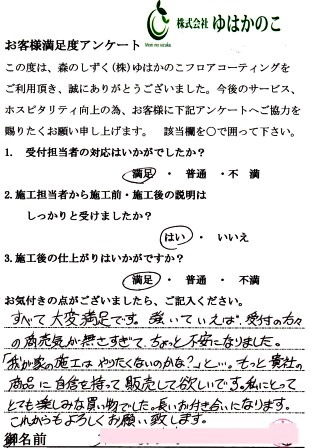 株式会社 ゆはかのこ
お客様満足度アンケート
この度は、森のしずく(株)ゆはかのこフロアコーティングを
ご利用頂き、誠にありがとうございました。今後のサービス、
ホスピタリティ向上の為、お客様に下記アンケートへご協力を
賜りたくお願い申し上げます。 該当欄を〇で囲って下さい。
1. 受付担当者の対応はいかがでしたか?
満足 ・ 普通 ・不 満
2.施工担当者から施工前・施工後の説明は
しっかりと受けましたか?
はい ・ いいえ
3.施工後の仕上がりはいかがですか?
満足 ・ 普通 ・ 不満
お気付きの点がございましたら、ご記入ください。
すべて大変満足です。強いていえば、受付の方々
の商売気が無さすぎて、ちょっと不安になりました。
「我が家の施工はやりたくないのかな?」と…。もっと貴社の
商品に自信を持って販売して欲しいです。私にとって
とても楽しみな買い物でした。長いお付き合いになります。
これからもよろしくお願い致します。
御名前